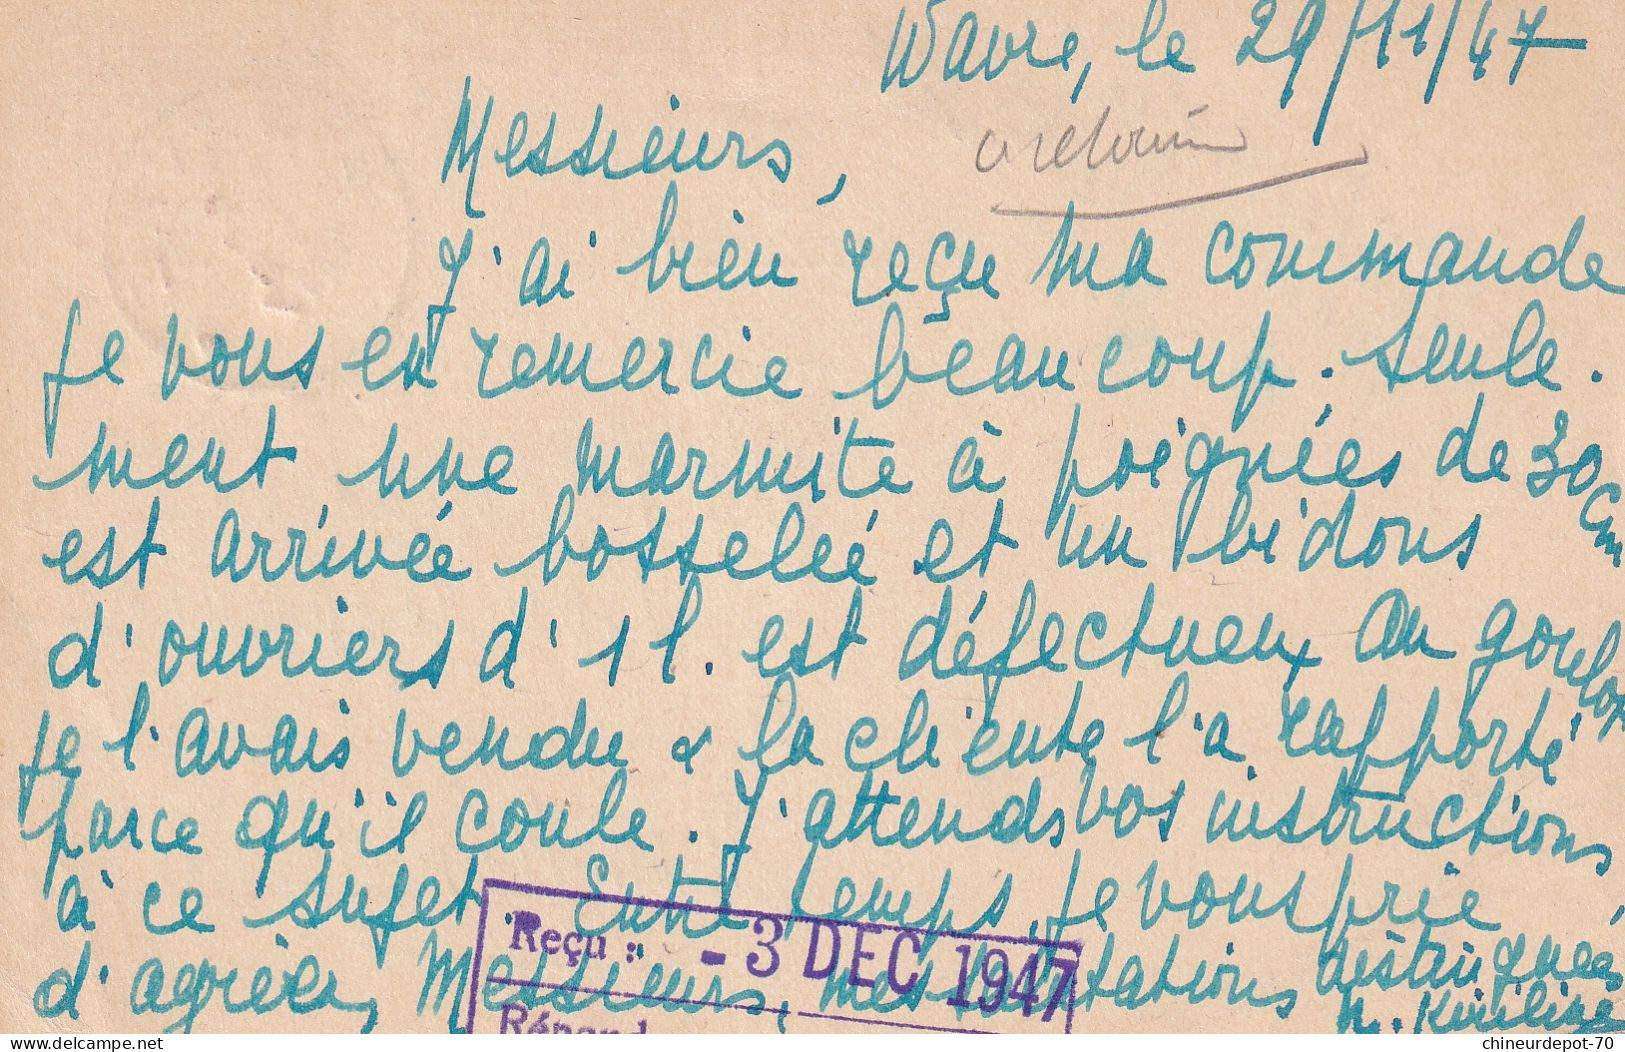 Wavre, le 29/11/47
Messieurs,
J'ai bien reçu ma commande
je vous en remercie beaucoup. Seule.
ment une marmite à poignées de 30 cm
est arrivée bosselée et un bidons
d'ouvriers d'1 l. est défectueux au goulot
je l'avais vendu & la cliente l'a rapporté
parce qu'il coule. J'attends vos instructions
à ce sujet. Entre temps, je vous prie
d'agréer, Messieurs, mes salutations distinguées
Reçu : - 3 DEC 1947
Répond
delcampe.net
chineurdepot-70